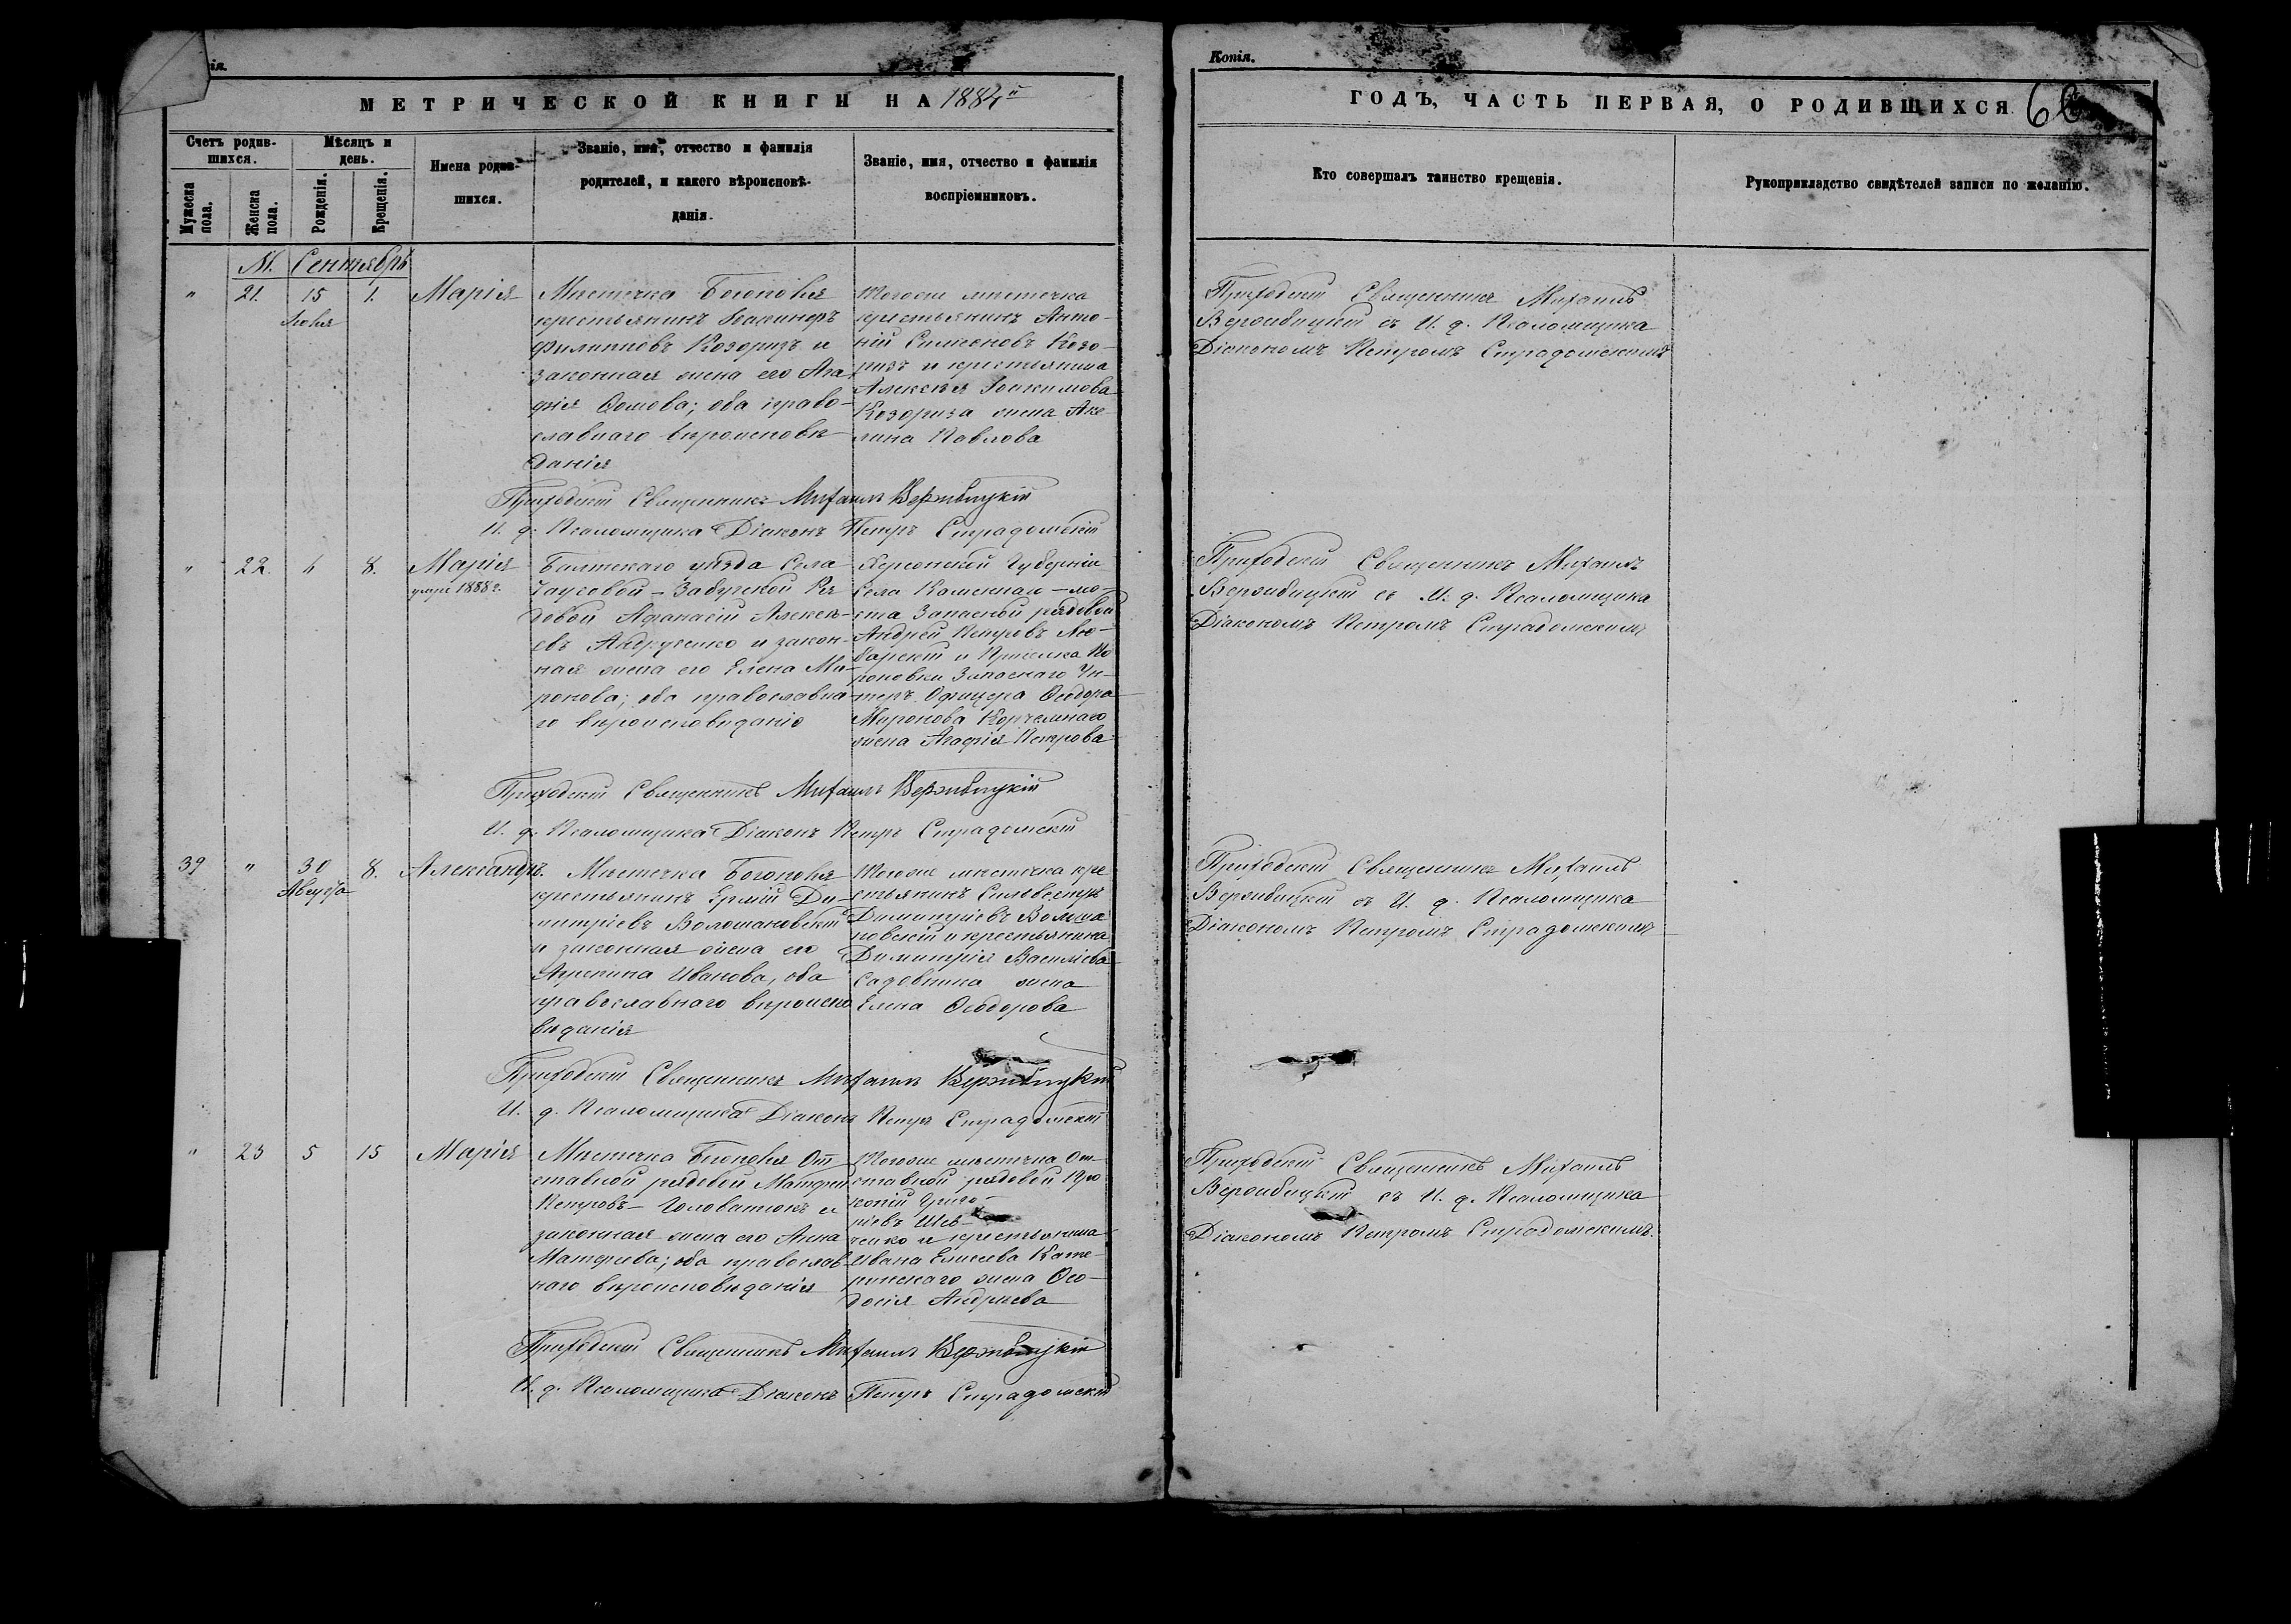 Копія.
МЕТРИЧЕСКОЙ КНИГИ НА 1884й
ГОДЪ, ЧАСТЬ ПЕРВАЯ, О РОДИВШИХСЯ.
Счетъ родив-
шихся.
Мужеска пола.
Женска пола.
Мѣсяцъ и
день.
Рожденія.
Крещенія.
Имена родив-
шихся.
Званіе, имя, отчество и фамилія
родителей, и какого вѣроисповѣ-
данія.
Званіе, имя, отчество и фамилія
воспріемниковъ.
Кто совершалъ таинство крещенія.
Рукоприкладство свидѣтелей записи по желанію.
М. Сентябрь
" 21. 15 1. Марія
Мѣстечка Богополя
крестьянинъ
Филипповъ Козоризъ и
законная жена его Ага-
фія Ѳомова; оба право-
славнаго вѣроисповѣ-
данія
Тогоже мѣстечка
крестьянинъ Анто-
ній Симеоновъ Козо-
ризъ и крестьянина
Алексѣя Іоакимова
Козориза жена Аке-
лина Павлова
Приходскій Священникъ Михаилъ
Вержбицкій съ И. д. Псаломщика
Діакономъ Петромъ Страдомскимъ
Приходскій Священникъ Михаилъ Вержбицкій
И. д. Псаломщика Діаконъ Петръ Страдомскій
" 22. 8. Марія
умре 1888 г.
Балтскаго уѣзда Села
Чаусовой-Забугской Ря-
довой Афанасій Алексѣ-
евъ Андрусенко и закон-
ная жена его Елена Ми-
ронова; оба православна-
го вѣроисповѣданія
Херсонской Губерніи
Села Каменнаго-мо-
ста Запасной рядовой
Андрей Петровъ
и
Запаснаго Ун-
теръ Офицера Ѳеодора
Миронова
жена Агафія Петрова
Приходскій Священникъ Михаилъ
Вержбицкій съ И. д. Псаломщика
Діакономъ Петромъ Страдомскимъ
Приходскій Священникъ Михаилъ Вержбицкій
И. д. Псаломщика Діаконъ Петръ Страдомскій
39 " 30 8. Александръ.
Августа
Мѣстечка Богополя
крестьянинъ Ермій Ди-
митріевъ Воломановскій
и законная жена его
Агрипина Иванова, оба
православнаго вѣроиспо-
вѣданія
Тогоже мѣстечка кре
стьянинъ Сильвестръ
Димитріевъ
новскій и крестьянина
Димитрія Василіева
Садовника жена
Елена Ѳеодорова
Приходскій Священникъ Михаилъ
Вержбицкій съ И. д. Псаломщика
Діакономъ Петромъ Страдомскимъ
Приходскій Священникъ Михаилъ Вержбицкій
И. д. Псаломщика Діаконъ Петръ Страдомскій
" 23 5 15 Марія
Мѣстечка Богополя От
ставной рядовой Матфей
Петровъ Головатюкъ и
законная жена его Анна
Матфеева; оба православ-
наго вѣроисповѣданія
Тогоже мѣстечка От-
ставной рядовой Про
копій Григо-
ріевъ Шев-
ченко и крестьянина
Ивана Елисеева Кате-
ринскаго жена Ѳео-
досія Андреева
Приходскій Священникъ Михаилъ
Вержбицкій съ И. д. Псаломщика
Діакономъ Петромъ Страдомскимъ.
Приходскій Священникъ Михаилъ Вержбицкій
И. д. Псаломщика Діаконъ Петръ Страдомскій